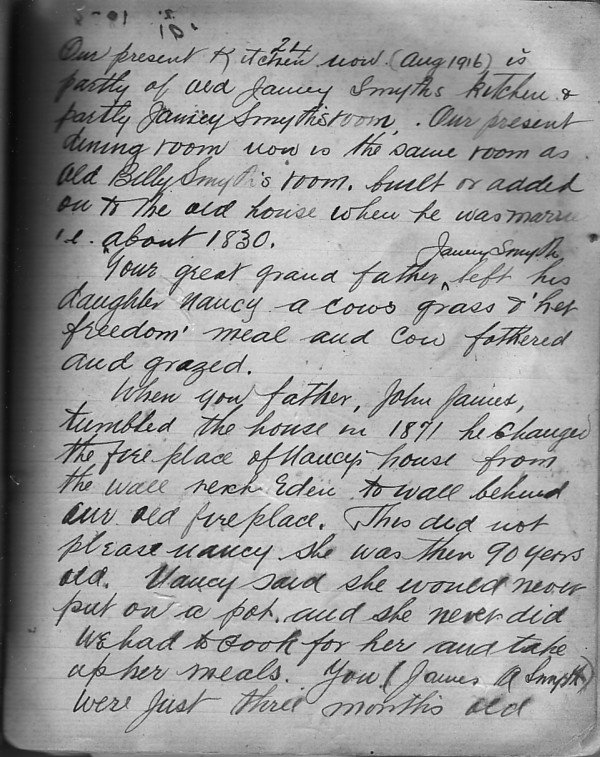 24
Our present Kitchen now (Aug 1916) is
partly of old Jamey Smyths kitchen &
partly Jamey Smyth's room. Our present
dining room now is the same room as
old Billy Smyth's room. built or added
on to the old house when he was marrie
i.e. about 1830.
Jamey Smyth
"Your great grand father, left his
daughter Nancy a cows grass & 'her
freedom' meal and Cow fothered
and grazed.
When you father, John James,
tumbled the house in 1871 he changed
the fire place of Nancy's house from
the wall next Eden to wall behind
our old fireplace. This did not
please Nancy she was then 90 years
old. Nancy said she would never
put on a pot. and she never did
We had to cook for her and take
up her meals. You (James A Smyth)
were just three months old